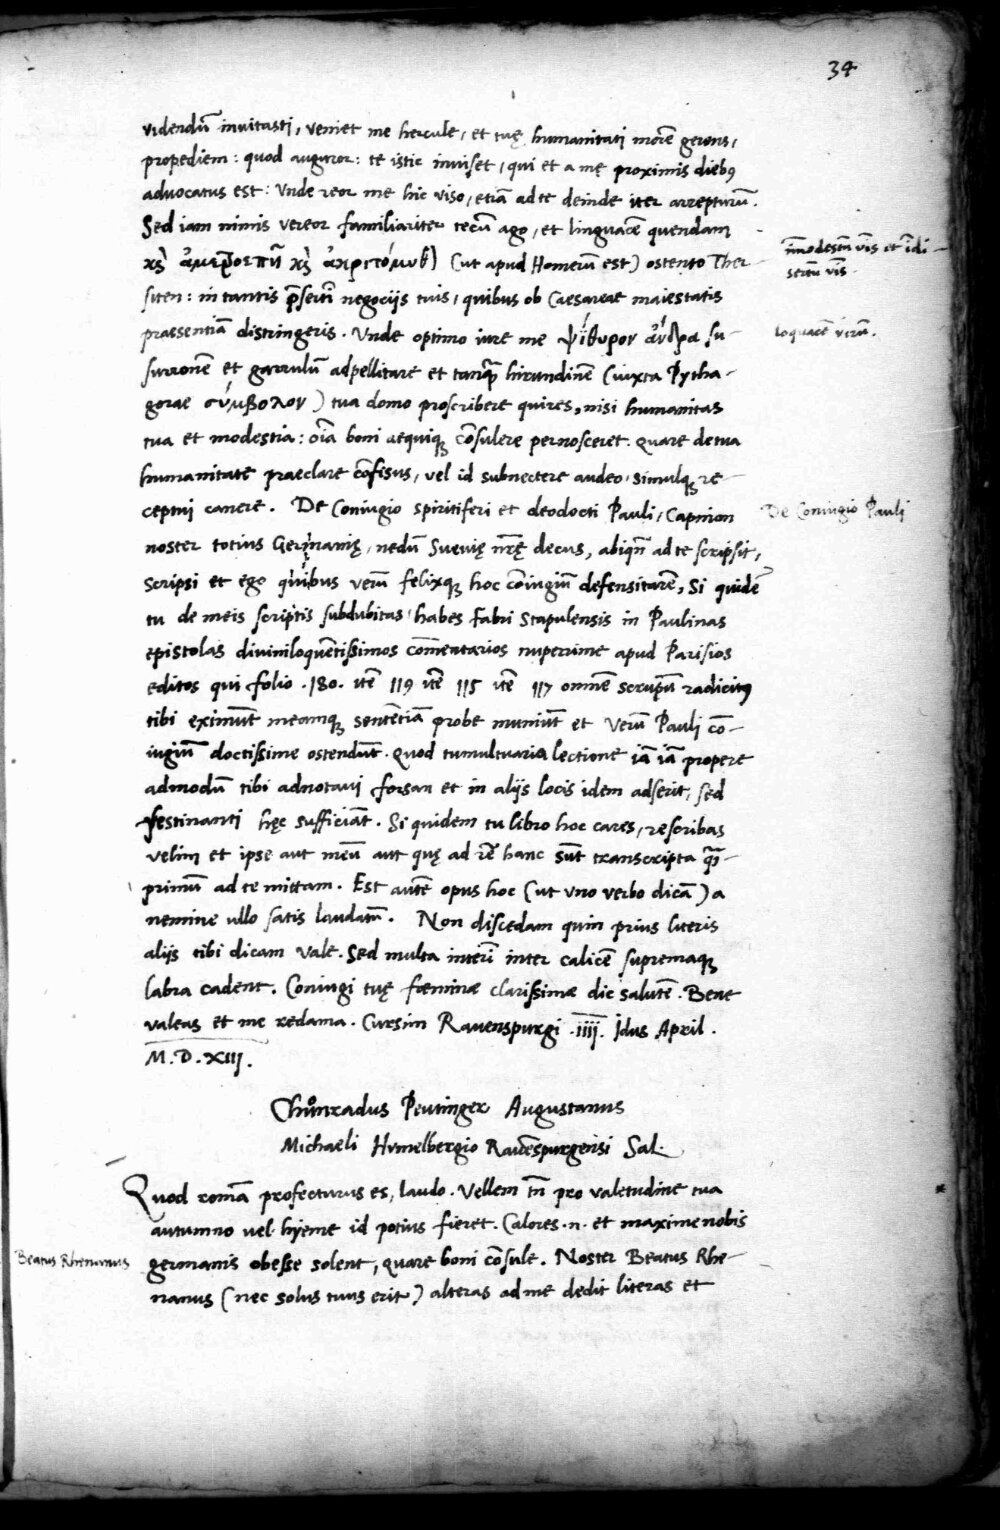 34
videndū invitasti, veniet me hercule, et tuę humanitati morē gerens,
propediem: quod auguror: te istic inviset, qui et a me proximis diebꝰ
advocatus est: Vnde reor me hic viso, etiā ad te deinde iter arrepturū.
Sed iam nimis vereor familiariter tecū ago, et linguacē quendam
(ut apud Homerū est) ostento Ther-
siten: in tantis p̄sertī negocijs tuis, quibus ob Caesareae maiestatis
praesentiā distringeris. Vnde optimo iure me ψίθυρον ἄνδρα su-
surronē et garrulū adpellitare et tanq̄ hirundinē (iuxta Pytha-
gorae σύμβολον) tua domo proscribere quires, nisi humanitas
tua et modestia: oīa boni aequiqꝫ cōsulere pernosceret. Quare de tua
humanitate praeclare cōfisus, vel id subnectere audeo, simulqꝫ re-
ceptui canere. De Coniugio spiritiferi et deodocti Pauli, Capnion
noster totius Germanię, nedū Suevię nr̄ę decus, abiqn̄ ad te scripsit,
scripsi et ego quibus verū felixqꝫ hoc cōiugiū defensitarē, Si quidē
tu de meis scriptis subdubitas, habes Fabri Stapulensis in Paulinas
epistolas diviniloquētissimos com̄entarios nuperrime apud Parisios
editos qui folio .180. itē 119 itē 115 itē 117 omnē scrupū radicitꝰ
tibi eximūt meamqꝫ sentētiā probe muniūt et verū Pauli cō-
iugiū doctissime ostendūt. Quod tumultuaria lectione iā iā propere
admodū tibi adnotavi forsan et in alijs locis idem adserit, sed
festinanti hęc sufficiāt. Si quidem tu libro hoc cares, rescribas
velim et ipse aut meū aut quę ad rē hanc sūt transcripta q̄-
primū ad te mittam. Est autē opus hoc (ut uno verbo dicā) a
nemine ullo satis laudatū. Non discedam quin prius literis
alijs tibi dicam vale. Sed multa interī inter calicē supremaqꝫ
labra cadent. Coniugi tuę fœminæ clarissimæ dic salutē. Bene
valeas et me redama. Cursim Ravenspurgi .iiij. Idus April.
M.D.XIIJ.
īmodestū vīs et īdi-
sertū vīs.
loquacē virū.
De Coniugio Pauli
Chůnradus Peutinger Augustanus
Michaeli Humelbergio Ravēspurgensi Sal.
Quod romā profecturus es, laudo. Vellem tn̄ pro valetudine tua
autumno vel hyeme id potius fieret. Calores .n. et maxime nobis
germanis obesse solent, quare boni cōsule. Noster Beatus Rhe-
nanus (nec solus tuus erit) alteras ad me dedit literas et
Beatus Rhenanus